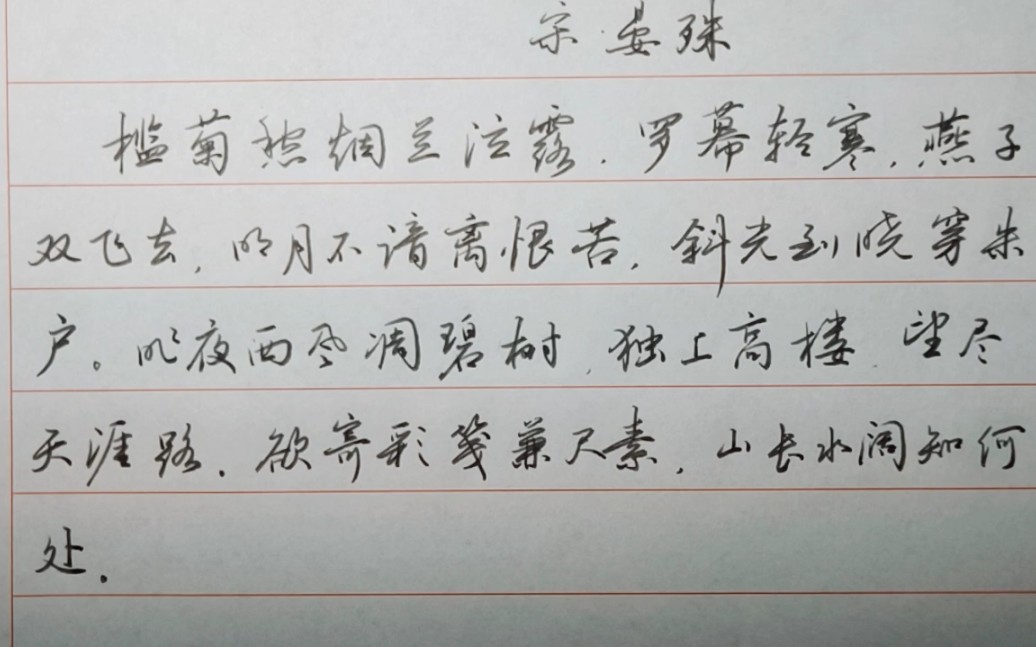 宋·晏殊
槛菊愁烟兰泣露.罗幕轻寒,燕子
双飞去,明月不谙离恨苦,斜光到晓穿朱
户。昨夜西风凋碧树,独上高楼,望尽
天涯路.欲寄彩笺兼尺素,山长水阔知何
处.